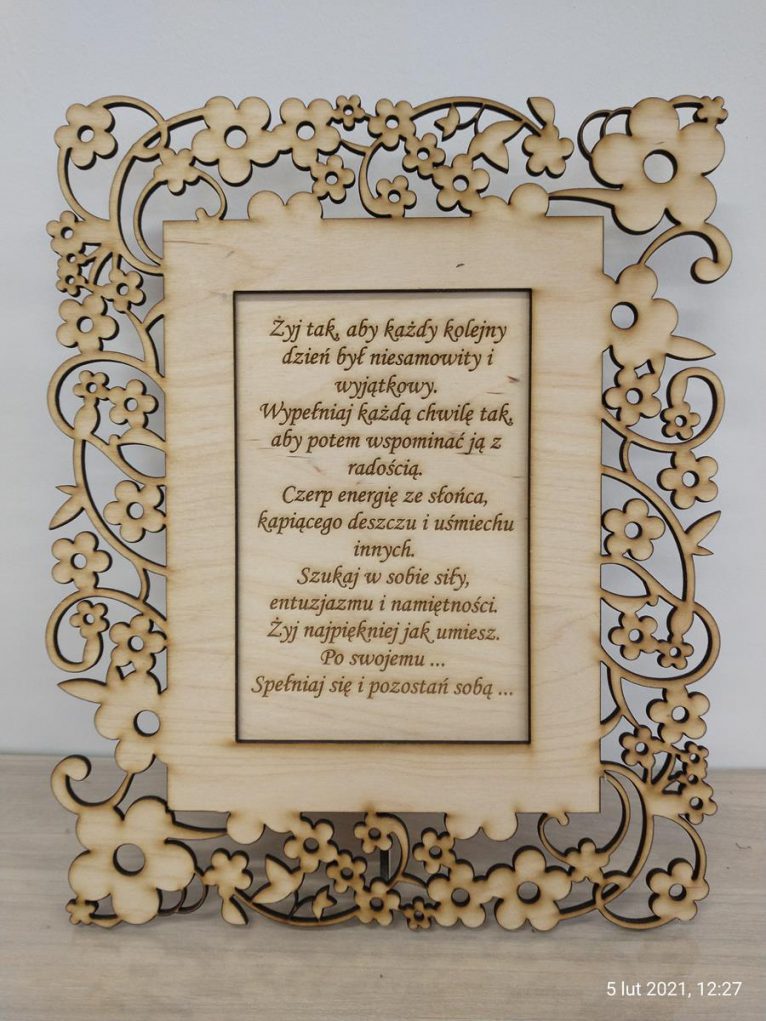 Żyj tak, aby każdy kolejny
dzień był niesamowity i
wyjątkowy.
Wypełniaj każdą chwilę tak,
aby potem wspominać ją z
radością.
Czerp energię ze słońca,
kapiącego deszczu i uśmiechu
innych.
Szukaj w sobie siły,
entuzjazmu i namiętności.
Żyj najpiękniej jak umiesz.
Po swojemu ...
Spełniaj się i pozostań sobą ...
5 lut 2021, 12:27